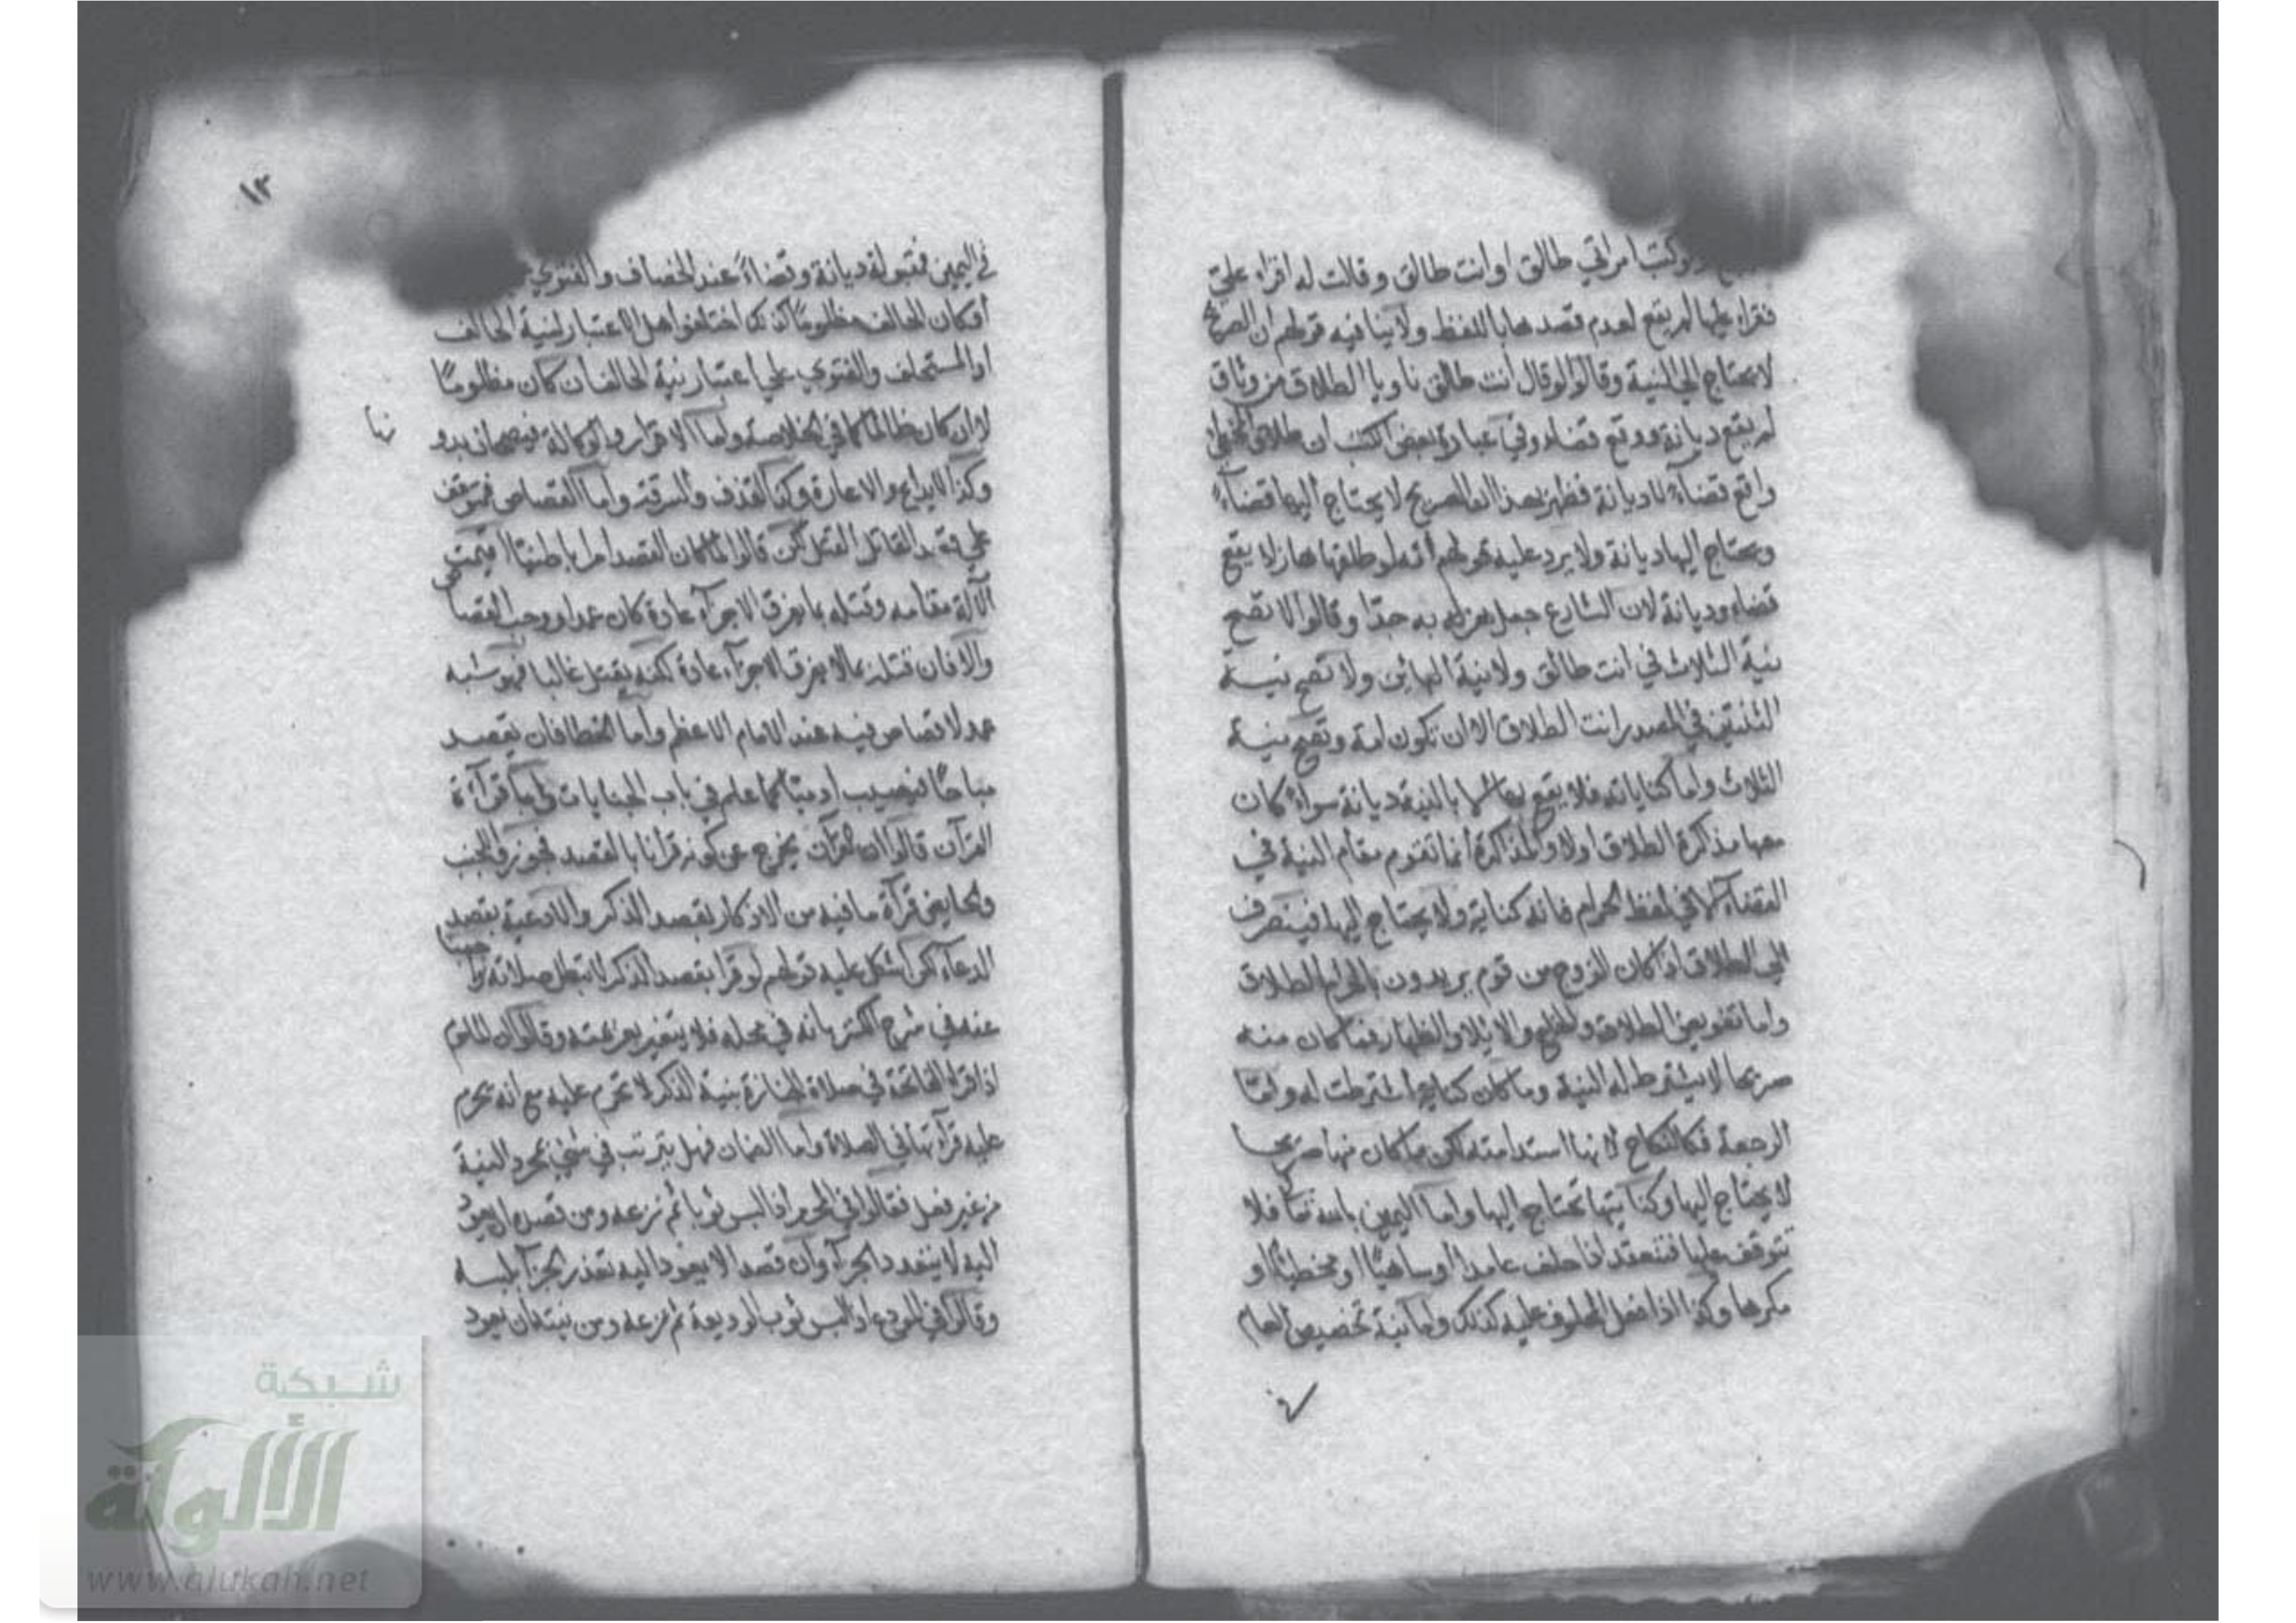 وكتب امراتي طالق او انت طالق وقالت له اقراء علي
فقراء عليها لم يقع لعدم قصدها باللفظ ولا ينافيه قولهم ان الصريح
لا يحتاج الي النية وقالوا لو قال انت طالق ناويا الطلاق من وثاق
لم يقع ديانة ووقع قضاء وفي عبارة بعض الكتب ان طلاق المخطي
واقع قضاء لا ديانة فظهر بهذا ان الصريح لا يحتاج اليها قضاء
ويحتاج اليها ديانة ولا يرد عليه قولهم انه لو طلقها هازلا يقع
قضاء وديانة لان الشارع جعل هزله به جدا وقالوا لا تصح
نية الثلاث في انت طالق ولا نية البائن ولا تصح نية
الثنتين في المصدر انت الطلاق الا ان تكون امة وتصح نية
الثلاث واما كناياته فلا يقع بها الا بالنية ديانة سواء كان
معها مذاكرة الطلاق اولا والمذاكرة انما تقوم مقام النية في
القضاء الا في لفظ الحرام فانه كناية ولا يحتاج اليها فينصرف
الي الطلاق اذا كان الزوج من قوم يريدون بالحرام الطلاق
واما تفويض الطلاق والخلع والايلاء والظهار فما كان منه
صريحا لا يشترط له النية وما كان كناية اشترطت له واما
الرجعة فكالنكاح لانها استدامته لكن ما كان منها صريحا
لا يحتاج اليها وكنايتها تحتاج اليها واما اليمين بالله تعا فلا
تتوقف عليها فتنعقد اذا حلف عامدا او ساهيا او مخطيا او
مكرها وكذا اذا فعل المحلوف عليه كذلك واما نية تخصيص العام
في
١٣
في اليمين فمقبولة ديانة وقضاء عند الخصاف والفتوي
ان كان الحالف مظلوما كذلك اختلفوا هل الاعتبار لنية الحالف
او المستحلف والفتوي علي اعتبار نية الحالف ان كان مظلوما
لا ان كان ظالما كما في الخلاصة واما الاقرار والوكالة فيصحان بدو
نها
وكذا الايداع والاعارة وكذا القذف والسرقة واما القصاص فمتوقف
علي قصد القاتل القتل لكن قالوا لما كان القصد امرا باطنيا اقيمت
الآلة مقامه وقتله بما يفرق الاجزاء عادة كان عمدا ووجب القصاص
والا فان قتله بما لا يفرق الاجزاء عادة لكنه يقتل غالبا فهو شبه
عمد لا قصاص فيه عند الامام الاعظم واما الخطا فان يقصد
مباحا فيصيب ادميا كما علم في باب الجنايات واما قراءة
القرآن قالوا ان القرآن يخرج عن كونه قرآنا بالقصد فجوزوا للجنب
والحايض قرآة ما فيه من الاذكار بقصد الذكر والادعية بقصد
الدعاء لكن اشكل عليه قولهم لو قرا بقصد الذكر لا تبطل صلاته واجبنا
عنه في شرح الكنز بانه في محله فلا يتغير بعزيمته وقالوا ان الماموم
اذا قرا الفاتحة في صلاة الجنازة بنية الذكر لا تحرم عليه مع انه تحرم
عليه قرآتها في الصلاة واما الضمان فهل يترتب في شيء بمجرد النية
من غير فعل فقالوا في المحرم اذا لبس ثوبا ثم نزعه ومن قصده ان يعود
اليه لا يتعدد الجزاء وان قصد الا يعود اليه تعدد الجزاء بلبسه
وقالوا في المودع اذا لبس ثوب الوديعة ثم نزعه ومن نيته ان يعود
شبكة
الألوكة
www.alukah.net